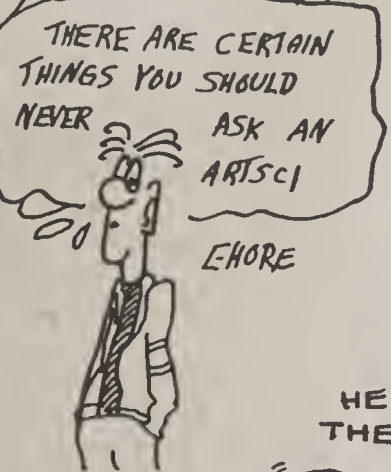 THERE ARE CERTAIN
THINGS YOU SHOULD
NEVER ASK AN
ARTSCI
E-HORE
HE
THE